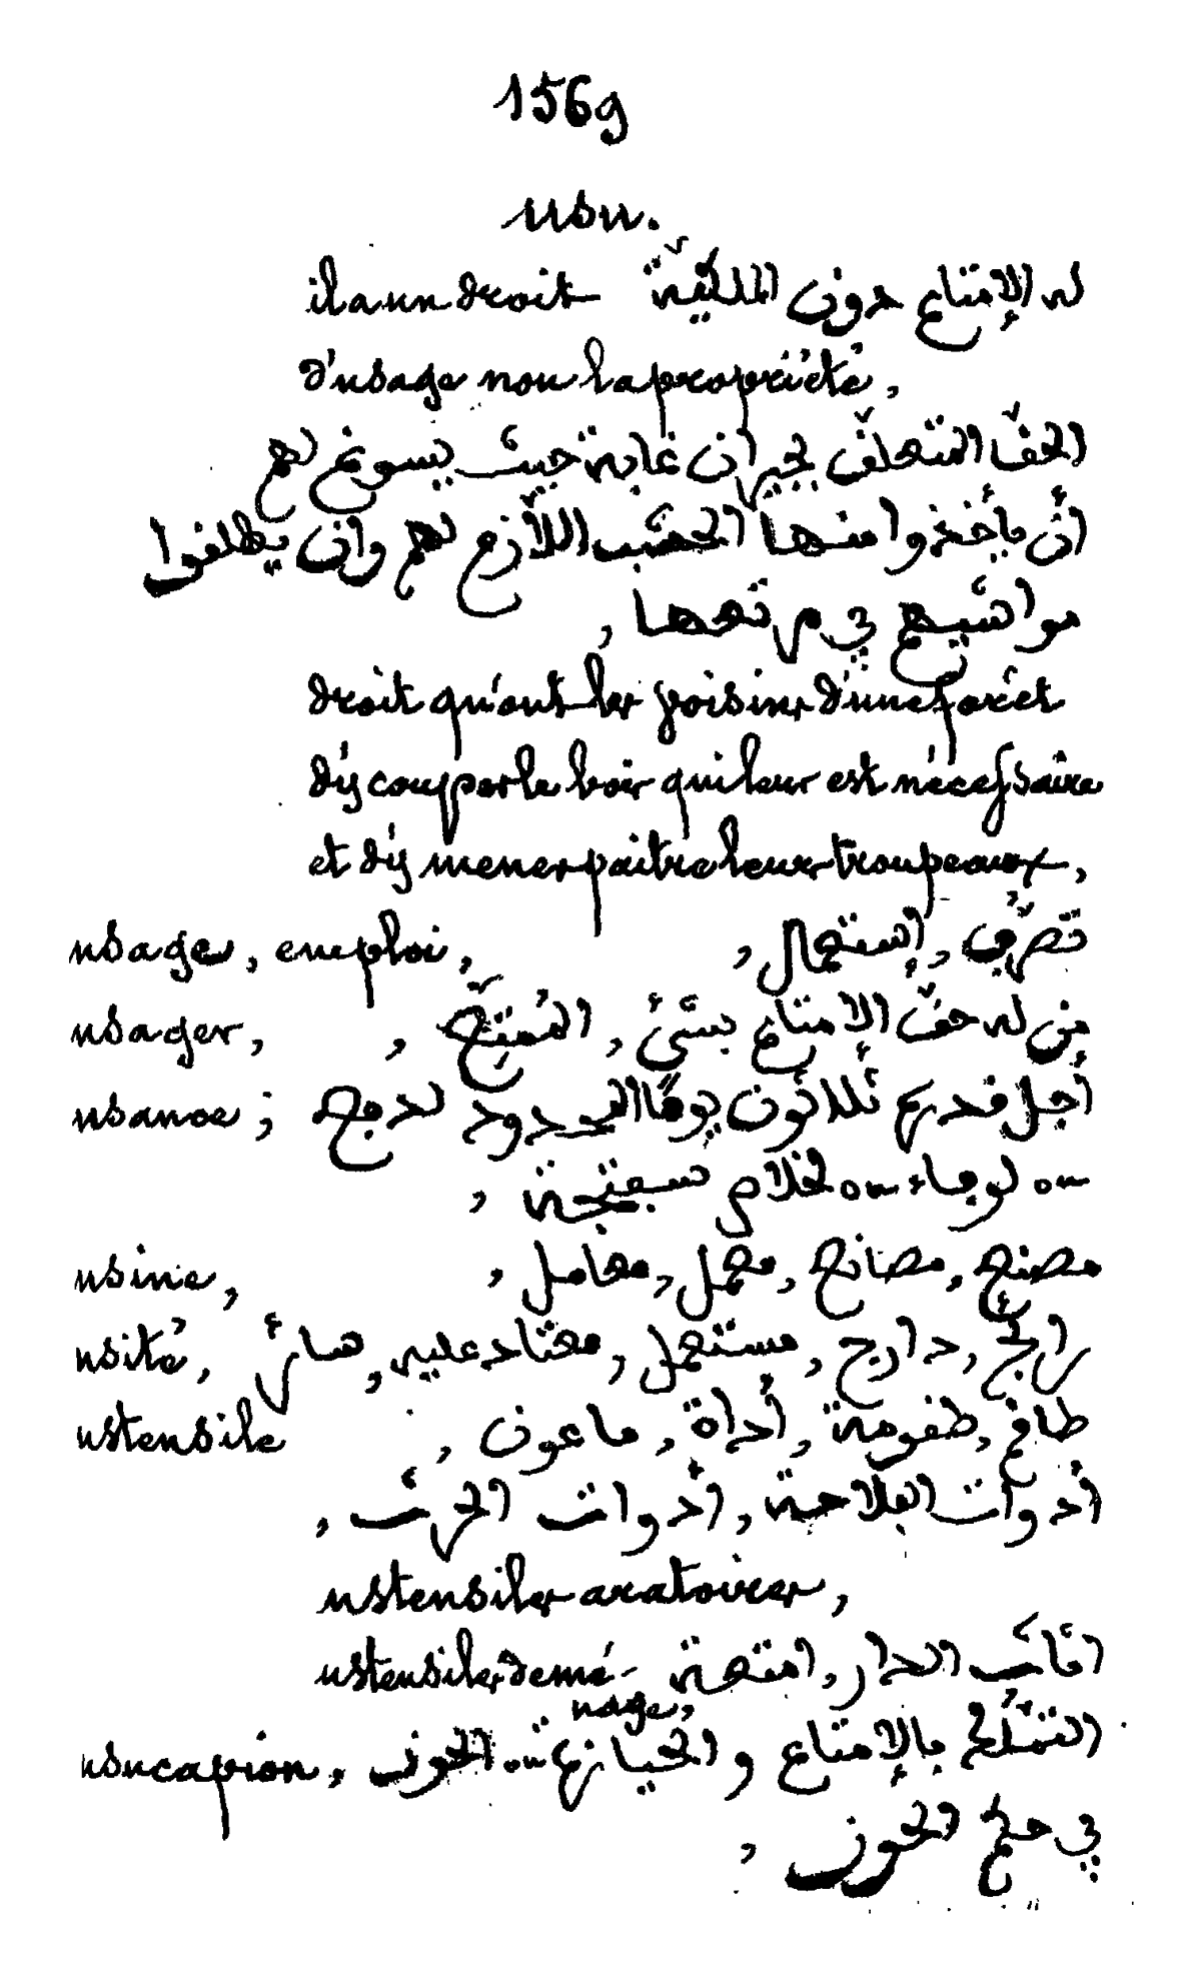 1569
usu.
il a un droit له الإمتاع دون الملكيّة
d'usage non la propriété,
الحقّ المتعلّق بجيران غابة حيث يسوغ لهم
أن يأخذوا منها الخشب اللاّزم لهم وان يطلقوا
مواشيهم في مرتعها,
droit qu'ont les voisins d'une forêt
d'y couper le bois qui leur est nécessaire
et d'y mener paître leurs troupeaux,
usage, emploi, تصرّف, إستعمال,
usager, من له حقّ الإمتاع بشيء, المُمتّع,
usance; أجل قدره ثلاثون يومًا المحدود لدفع
ou لوفاء ou لخلاص سفتجة,
usine, مصنع, مصانع, معمل, معامل,
usité, رائج, دارج, مستعمل, معتاد عليه, سائر
ustensile طاقم, طقومة, أداة, ماعون,
أدوات الفلاحة, أدوات الحرث,
ustensiles aratoires,
ustensiles de mé- اثاث الدار, امتعة
nage,
usucapion, التملّك بالإمتاع و الحيازة ou الحوز
في حكم الحوز,